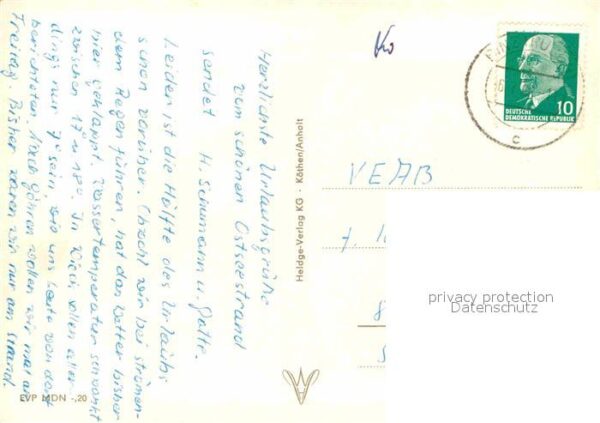 Herzlichste Urlaubsgrüße
vom schönen Ostseestrand
sendet H. Schumann u. Gatte.
Leider ist die Hälfte des Urlaubs
schon vorüber. Obzwohl wir bei strömen-
dem Regen fuhren, hat das Wetter bisher
hier geklappt. Wassertemperatur schwankt
zwischen 17 u. 18°. In Wieck sollen aller-
dings nur 7° sein, wie uns Leute von dort
berichteten. Nach Göhren wollen wir mal am
Freitag. Bisher waren wir nur am Strand.
EVP MDN -,20
Heldge-Verlag KG · Köthen/Anholt
Ko
10
DEUTSCHE
DEMOKRATISCHE REPUBLIK
c
VEAB
privacy protection
Datenschutz